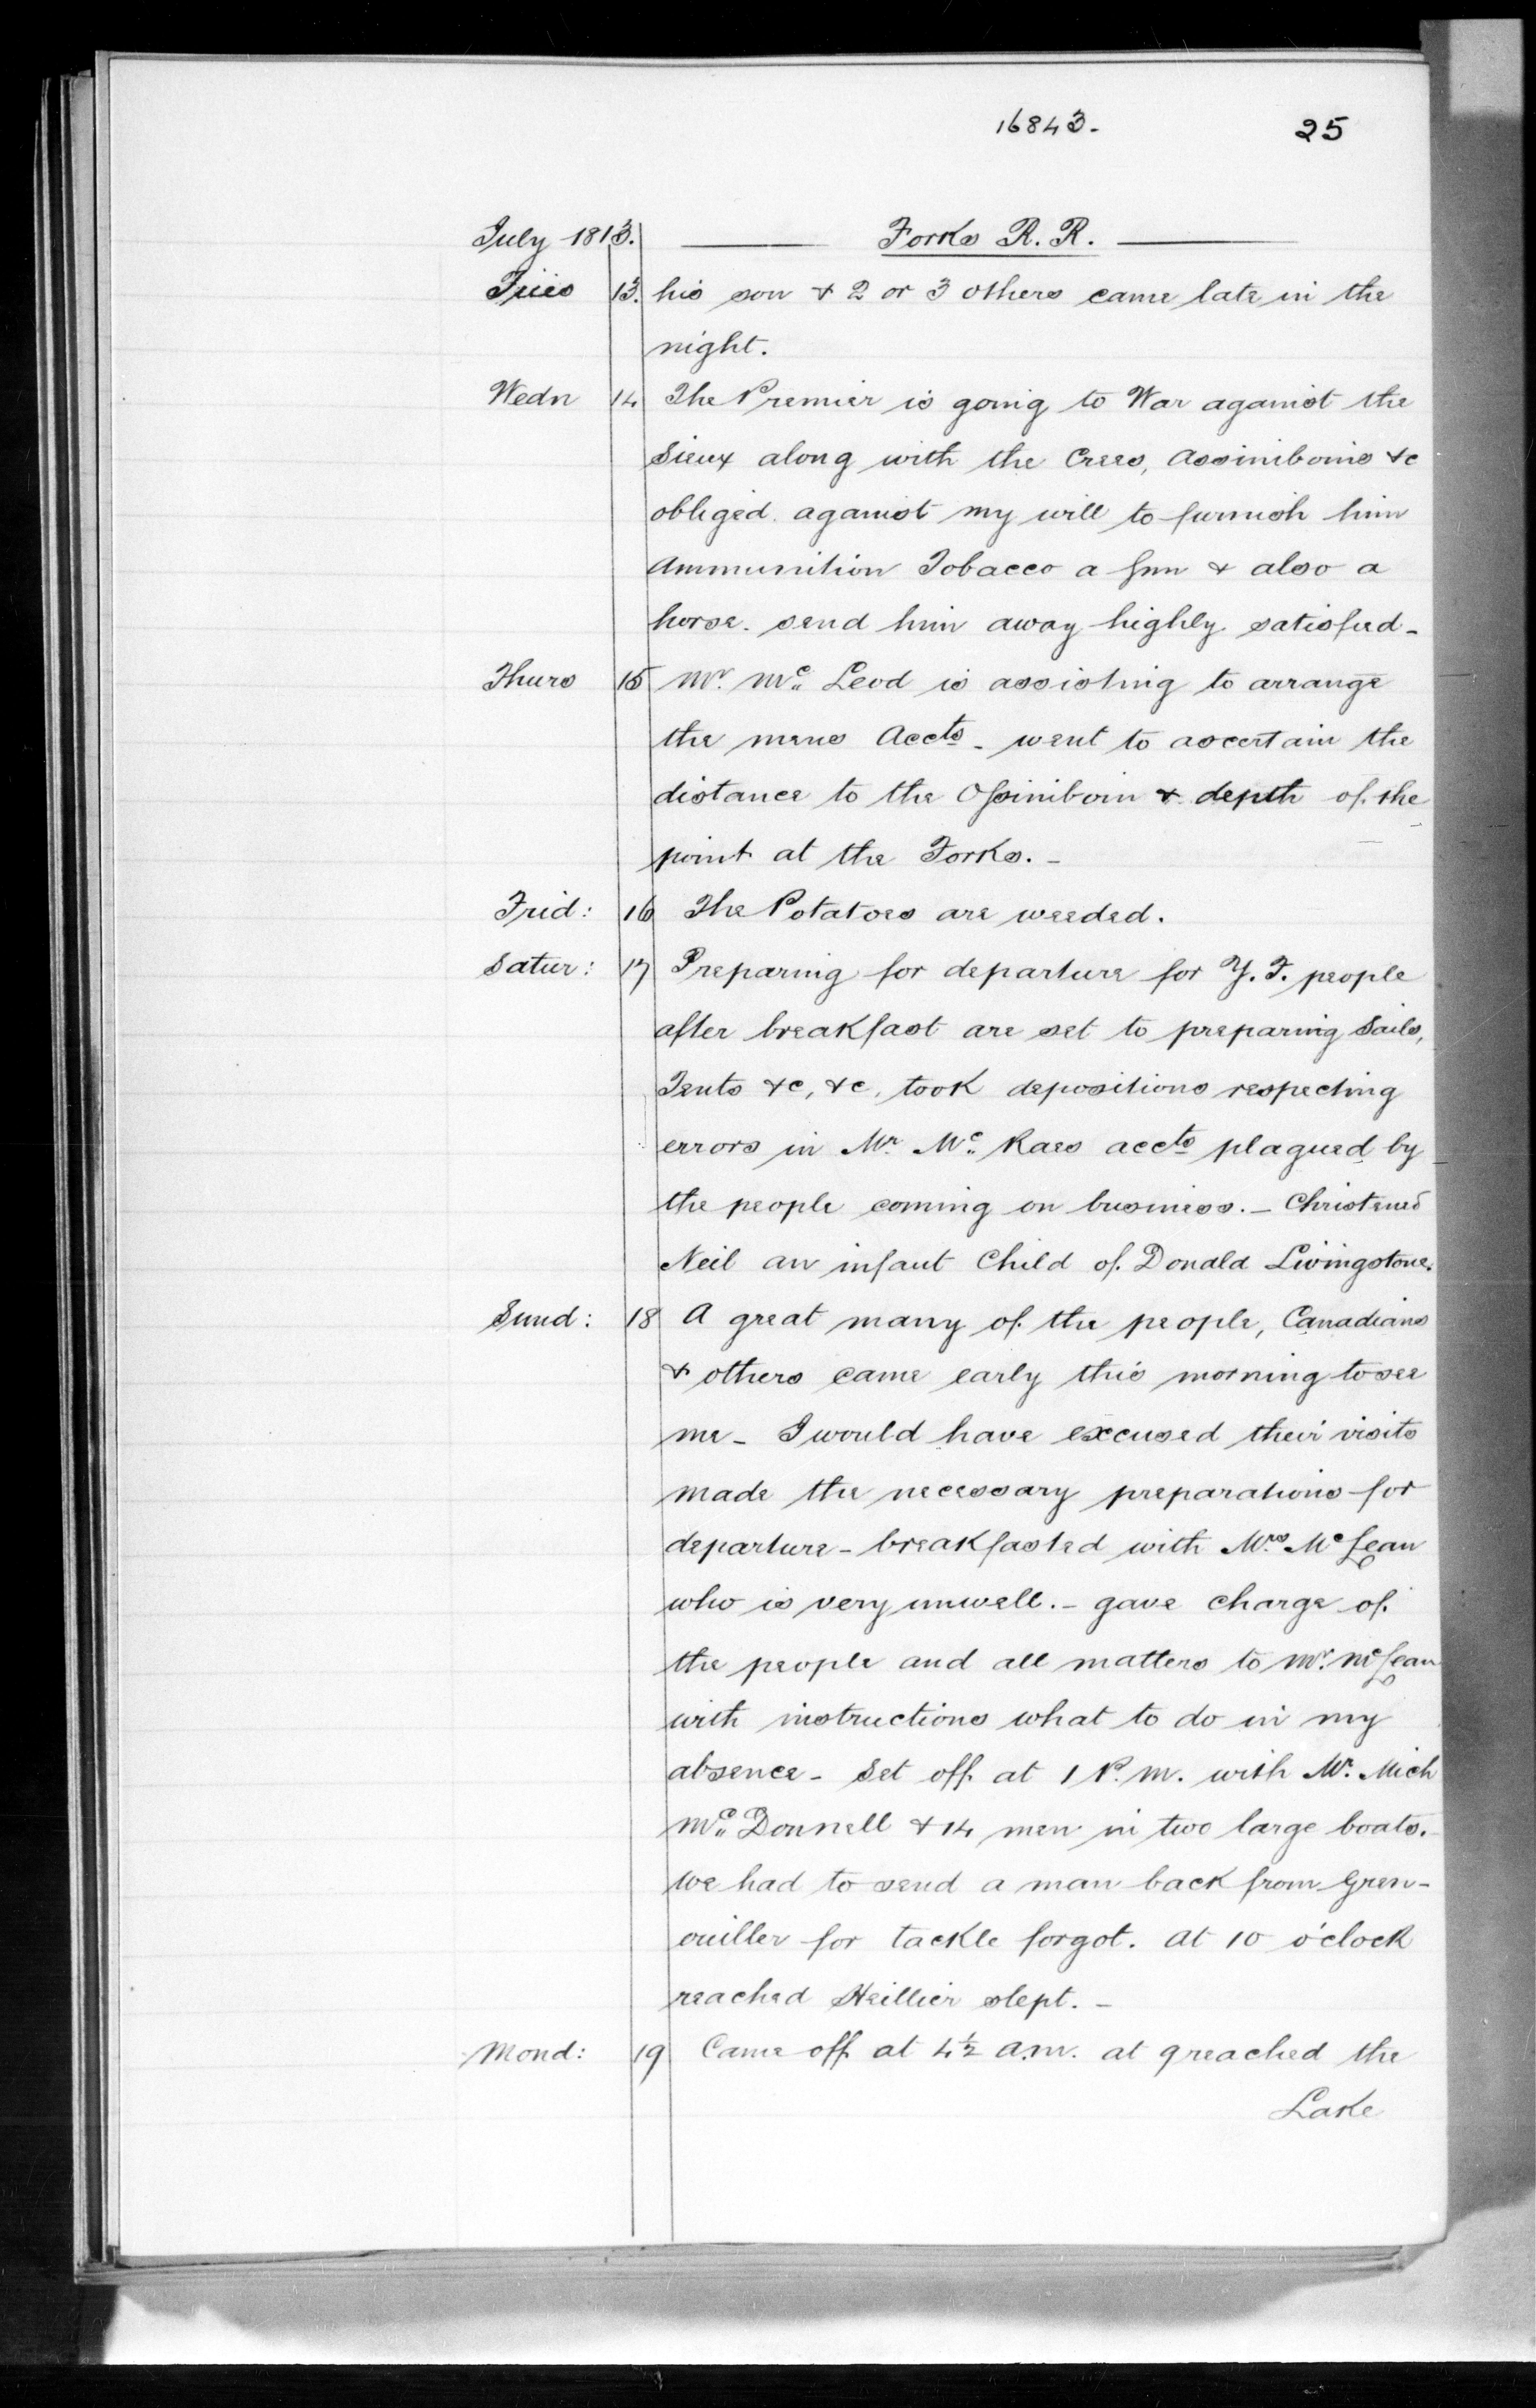 16843. 25
July 1813. Forks R. R.
Tues 13. his son & 2 or 3 others came late in the
night.
Wedn 14 The Premier is going to War against the
Sieux along with the Crees, Assiniboins &c
obliged against my will to furnish him
Ammunition Tobacco a gun & also a
horse. send him away highly satisfied -
Thurs 15 Mr. Mc. Leod is assisting to arrange
the mens Accts - went to ascertain the
distance to the Ossiniboin & depth of the
point at the Forks. -
Frid: 16 The Potatoes are weeded.
Satur: 17 Preparing for departure for Y. F. people
after breakfast are set to preparing Sails,
Tents &c, &c, took depositions respecting
errors in Mr. Mc. Raes accts plagued by
the people coming on business. - Christened
Neil an infant Child of Donald Livingstone.
Sund: 18 A great many of the people, Canadians
& others came early this morning to see
me - I would have excused their visits
made the necessary preparations for
departure - breakfasted with Mrs. McLean
who is very unwell. - gave charge of
the people and all matters to Mr. McLean
with instructions what to do in my
absence - Set off at 1 P. M. with Mr. Mich
Mc. Donnell & 14 men in two large boats.
we had to send a man back from Gren-
ouiller for tackle forgot. at 10 o'clock
reached Heillier slept. -
Mond: 19 Came off at 4 1/2 a.m. at 9 reached the
Lake